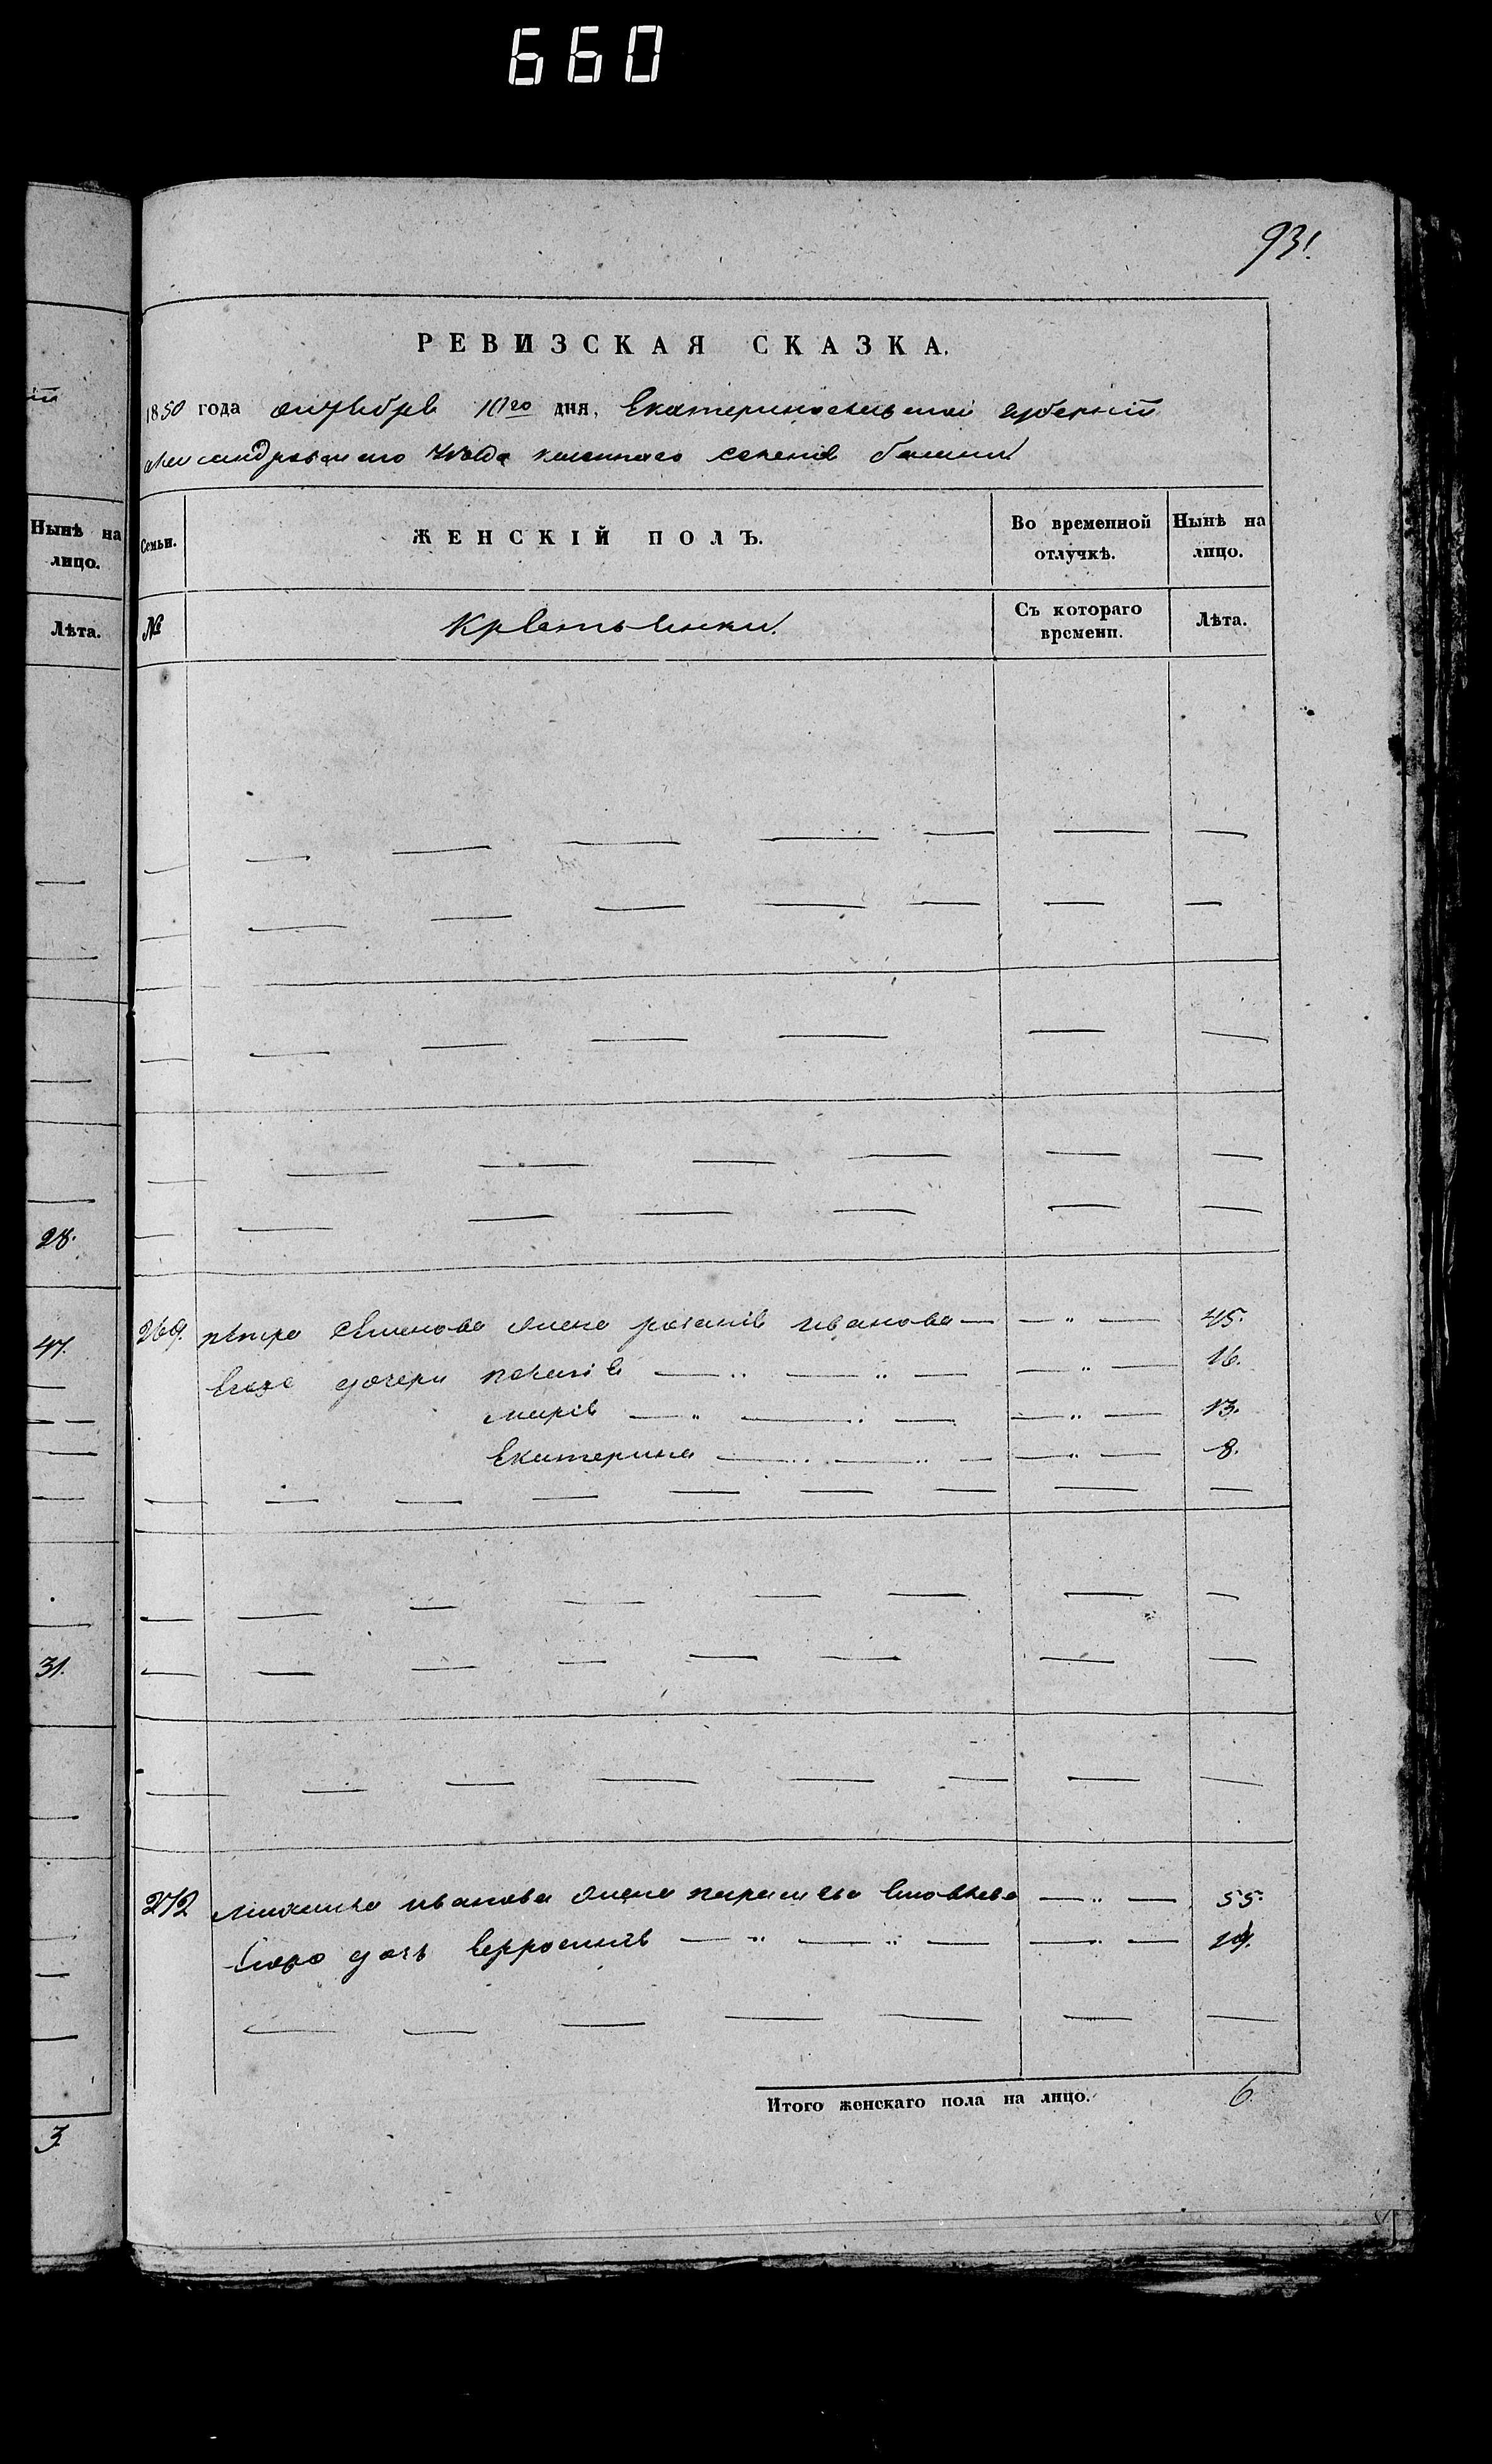 660
93.
РЕВИЗСКАЯ СКАЗКА.
1850 года октября 10го дня, Екатеринославской губерніи
александровскаго уѣзда казеннаго селенія
Нынѣ на лицо.
Семьи.
ЖЕНСКІЙ ПОЛЪ.
Во временной отлучкѣ.
Нынѣ на лицо.
Лѣта.
№
Крестьянки.
Съ котораго времени.
Лѣта.
28.
47.
31.
3
269. петра Семенова жена иванова — „ — 45.
Егоже дочери пелагія — „ — „ — — „ — 16.
марія — „ — „ — — „ — 13.
Екатерина — „ — „ — — „ — 8.
272 михаила иванова жена параскева — „ — 55.
Егоже дочь — „ — „ — — „ — 19.
Итого женскаго пола на лицо. 6.